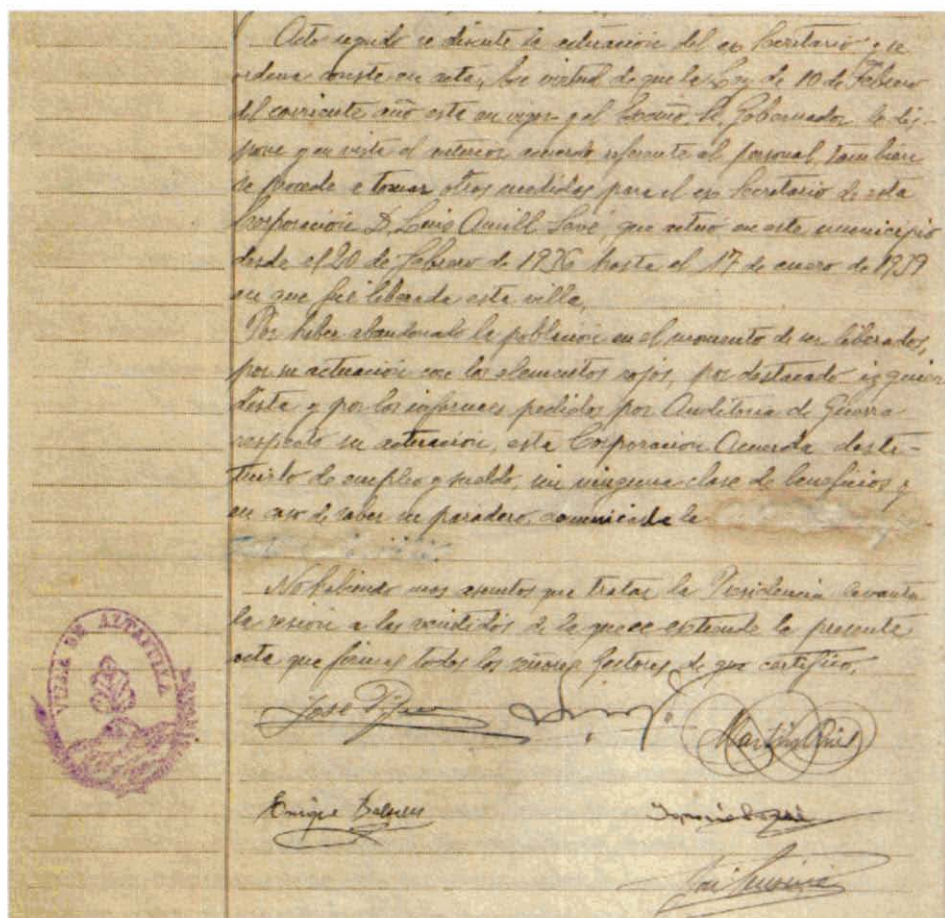 Acto seguido se discute la actuación del ex Secretario y se
ordena conste en acta, En virtud de que la Ley de 10 de Febrero
del corriente año esta en vigor y el Excmo, Sr, Gobernador lo dis-
pone y en vista el anterior acuerdo referente al personal, tambien
se procede a tomar otras medidas para el ex Secretario de esta
Corporación D, Luis que actuó en este municipio
desde el 20 de febrero de 1936 hasta el 17 de enero de 1939
en que fué liberada esta villa,
Por haber abandonado la población en el momento de ser liberados,
por su actuación con los elementos rojos, por destacado izquier
dista y por los informes pedidos por Auditoria de Guerra
respecto su actuación, esta Corporación Acuerda desti-
tuirlo de empleo y sueldo, sin ninguna clase de beneficios y
en caso de saber su paradero,
No habiendo mas asuntos que tratar la Presidencia levanta
la sesión a las de la que se extiende la presente
acta que firman todos los señores Gestores, de que certifico,
VILLA DE ALTAFULLA
José
Martin
Enrique
José